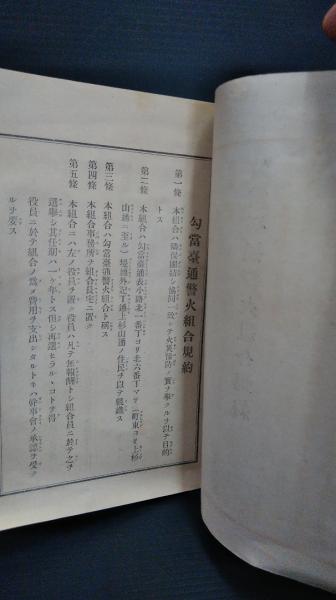 勾當臺通警火組合規約
第一條 本組合ハ隣保團結シ協同一致シテ火災豫防ノ實ヲ擧クルヲ以テ目的
トス
第二條 本組合ハ勾當臺通表小路北一番丁ヨリ北六番丁マテ(町東ヨリ上杉
山通ニ至ル)堤通外記丁通上杉山通ノ住民ヲ以テ組織ス
第三條 本組合ハ勾當臺通警火組合ト稱ス
第四條 本組合事務所ヲ組合長宅ニ置ク
第五條 本組合ニハ左ノ役員ヲ置ク役員ハ凡テ無報酬トシ組合員ニ於テ之ヲ
選擧シ其任期ハ一ケ年トス但シ再選セラルヽコトヲ得
役員ニ於テ組合ノ爲メ費用ヲ支出シタルトキハ幹事會ノ承認ヲ受ク
ルヲ要ス